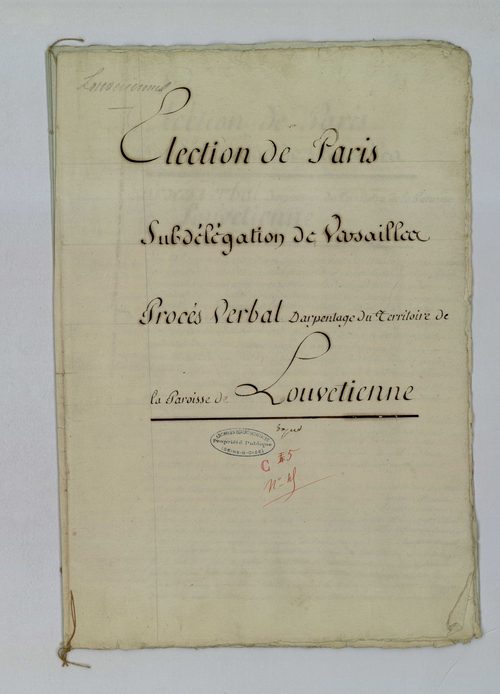 Louveciennes
Election de Paris
Subdélégation de Versailles
Procés Verbal Darpentage du Territoire de
la Paroisse de Louvetienne
Propriété Publique
(SEINE-&-OISE)
C 45
N° 45